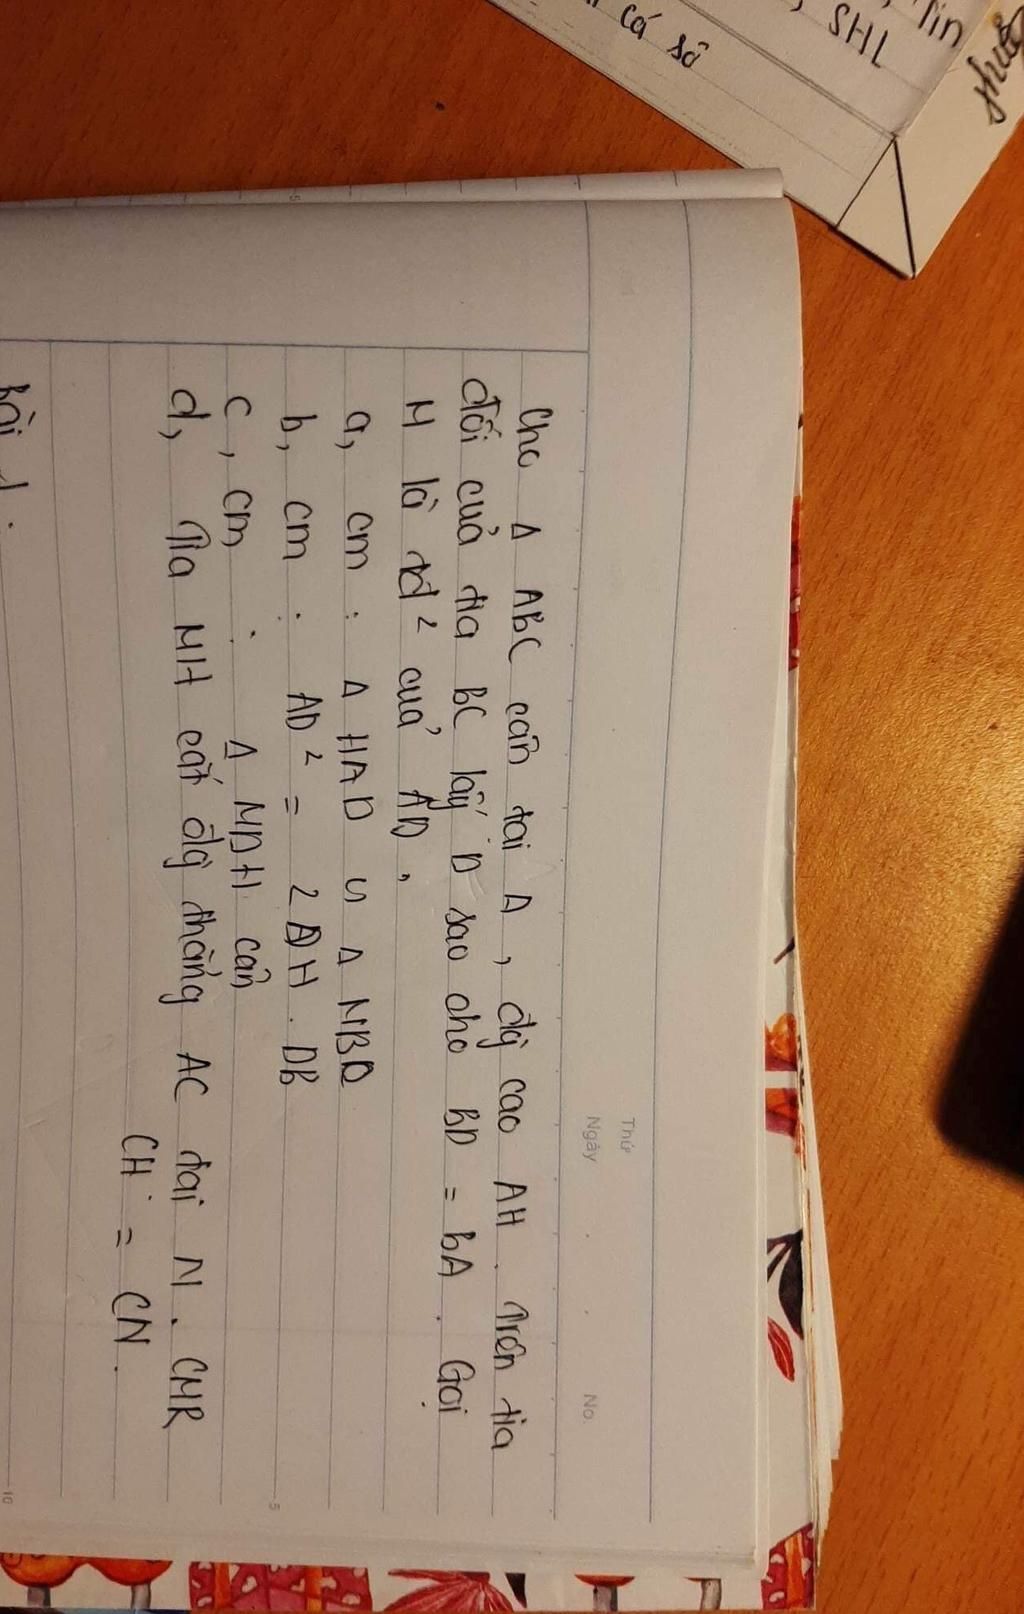 cá sô
, SHL
Tin
Thứ
Ngày
No.
Cho Δ ABC cân tại A, đg cao AH. Trên tia
đối của tia BC lấy D sao cho BD = BA. Gọi
M là tđ² của AD,
a, cm : Δ HAD ᔕ Δ MBD
b, cm : AD² = 2AH . DB
c, cm : Δ MDH cân
d, Tia MH cắt đg thẳng AC tại N. CMR
CH = CN.
Bài 1:
5
10